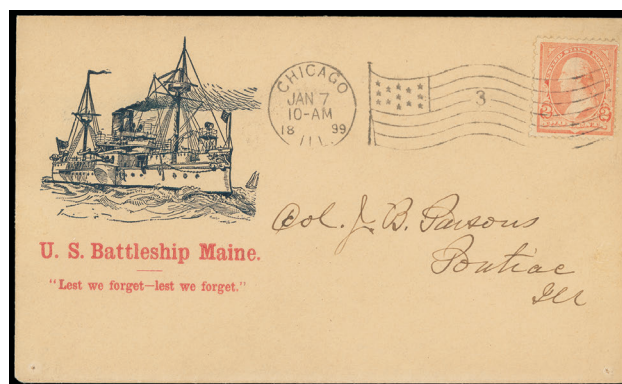 CHICAGO
JAN 7
10-AM
18 99
ILL
3
2 2
U. S. Battleship Maine.
"Lest we forget—lest we forget."
Col. J. B. Parsons
Pontiac
Ill